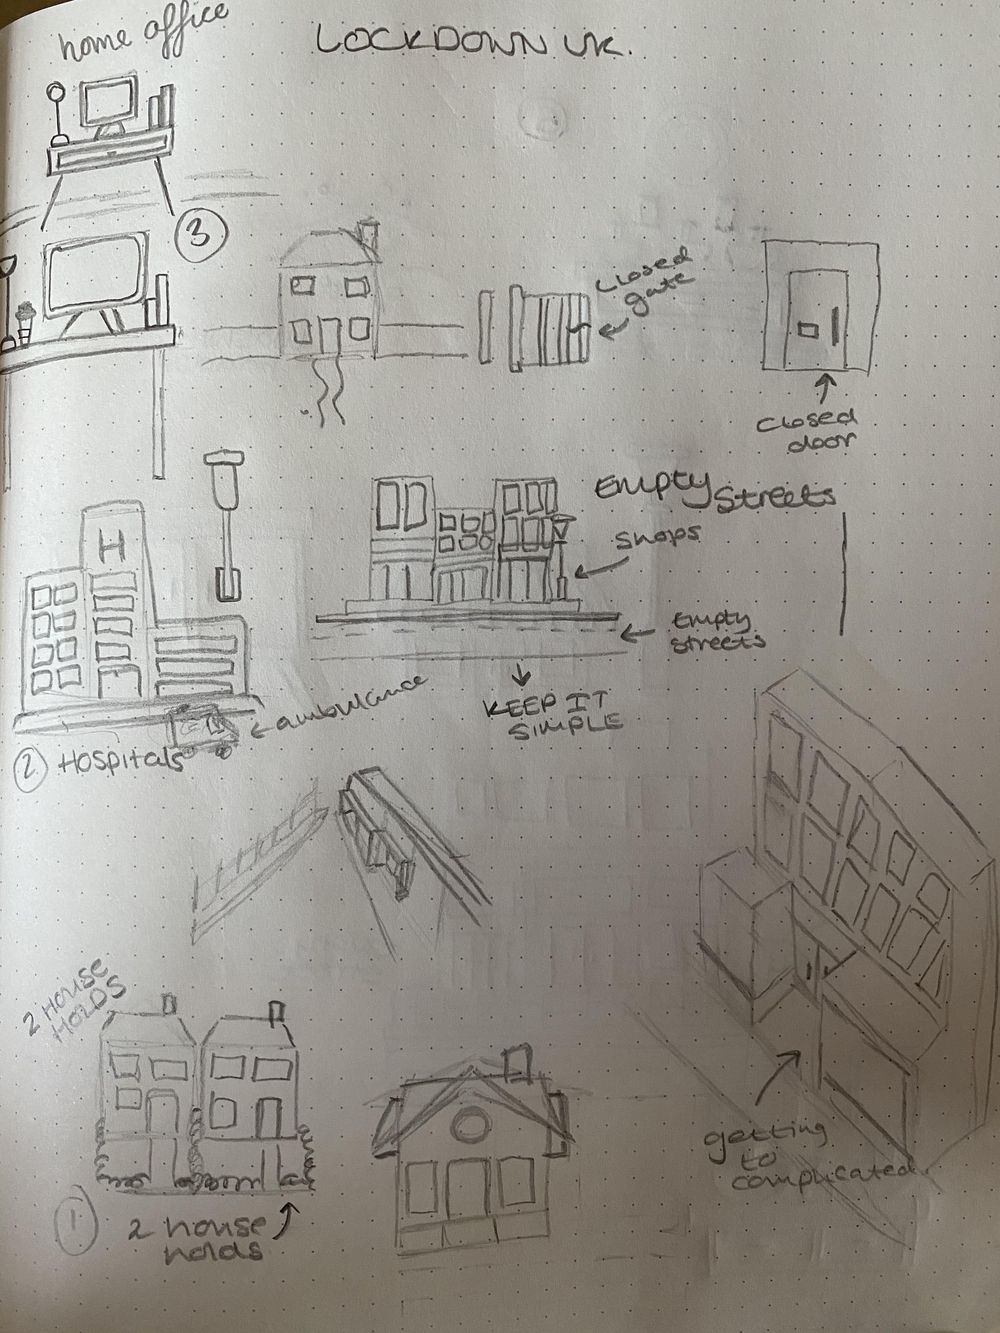 home office
LOCKDOWN UK.
3
closed
gate
closed
door
Empty
Streets
shops
H
Empty
streets
KEEP IT
SIMPLE
ambulance
2 Hospitals
2 HOUSE
HOLDS
getting
to
complicated
1
2 house
holds